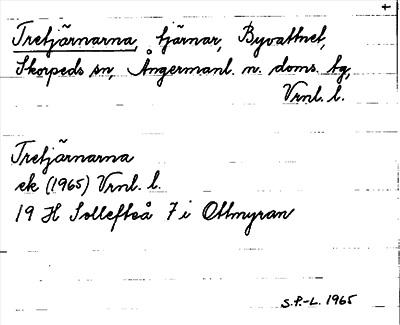 Tretjärnarna, tjärnar, Byvattnet,
Skorpeds sn, Ångermanl. n. doms. tg,
Vrnl. l.
Tretjärnarna
ek (1965) Vrnl. l.
19 H Sollefteå 7 i Ottmyran
S.P.-L. 1965